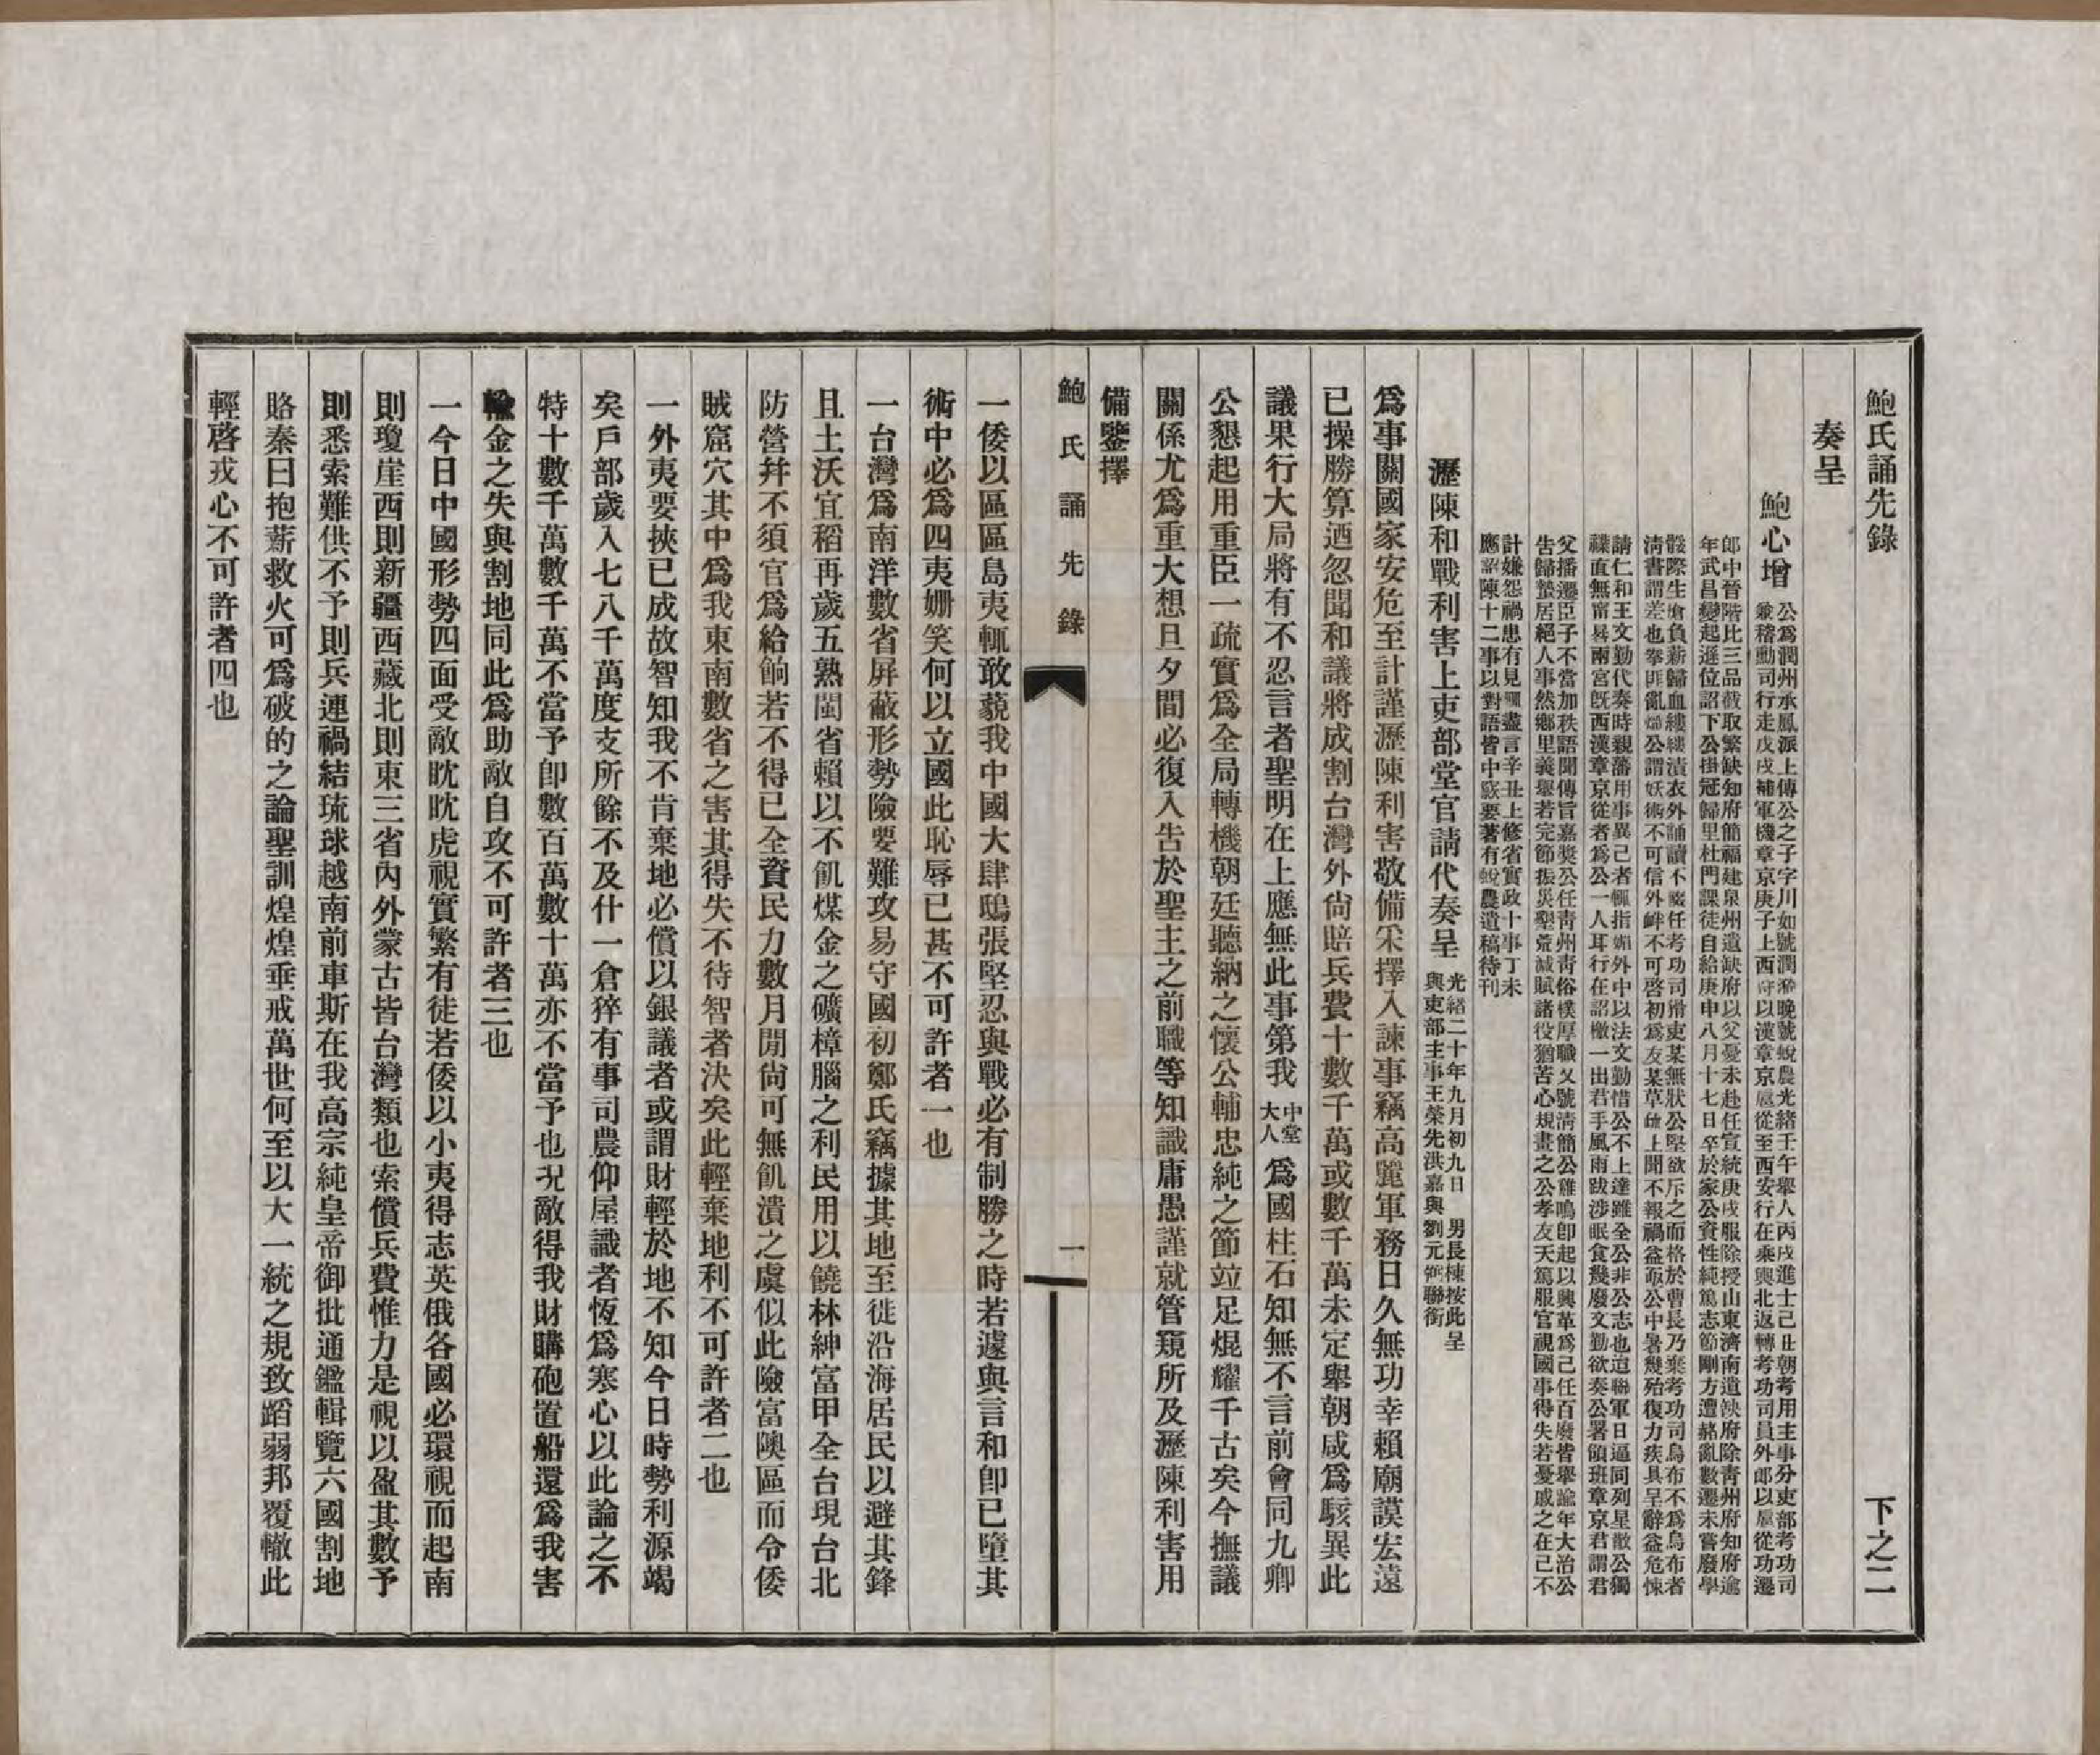 鮑氏誦先錄
下之二
奏呈
鮑心增
公爲潤州承鳳派上傳公之子字川如號潤漪晚號蛻農光緒壬午舉人丙戌進士己丑朝考用主事分吏部考功司
兼稽勳司行走戊戌補軍機章京庚子上西狩以漢章京扈從至西安行在乘輿北返轉考功司員外郎以扈從功遷
郎中晉階比三品截取繁缺知府簡福建泉州遺缺府以父憂未赴任宣統庚戌服除授山東濟南遺缺府除青州府知府逾
年武昌變起遜位詔下公掛冠歸里杜門課徒自給庚申八月十七日卒於家公資性純篤志節剛方遭赭亂數遷未嘗廢學
髫際生瘡負薪歸血縷縷漬衣外誦讀不輟任考功司胥吏某無狀公堅欲斥之而格於曹長乃棄考功司烏布不爲烏布者
淸書謂差也拳匪亂熾公謂妖術不可信外衅不可啓初爲友某草疏上聞不報禍益亟公中暑幾殆復力疾具呈辭益危悚
請仁和王文勤代奏時親藩用事異己者輒指媚外中以法文勤惜公不上達雖全公非公志也迨聯軍日逼同列星散公獨
襆直無甯晷兩宮旣西漢章京從者爲公一人耳行在詔檄一出君手風雨跋涉眠食幾廢文勤欲奏公署領班章京君謂君
父播遷臣子不當加秩語聞傳旨嘉獎公任青州靑俗樸厚職又號淸簡公雞鳴卽起以興革爲己任百廢皆舉逾年大治公
告歸蟄居絕人事然鄉里義舉若完節振災墾荒減賦諸役猶苦心規畫之公孝友天篤服官視國事得失若憂戚之在己不
計嫌怨禍患有見輒盡言辛丑上修省實政十事丁未
應詔陳十二事以對語皆中窾要著有蛻農遺稿待刊
瀝陳和戰利害上吏部堂官請代奏呈
光緒二十年九月初九日　男長棟按此呈
與吏部主事王榮先洪嘉與劉元弼聯銜
爲事關國家安危至計謹瀝陳利害敬備采擇入諫事竊高麗軍務日久無功幸賴廟謨宏遠
已操勝算迺忽聞和議將成割台灣外尙賠兵費十數千萬或數千萬未定舉朝咸爲駭異此
議果行大局將有不忍言者聖明在上應無此事第我中堂大人爲國柱石知無不言前會同九卿
公懇起用重臣一疏實爲全局轉機朝廷聽納之懷公輔忠純之節竝足焜耀千古矣今撫議
關係尤爲重大想旦夕間必復入告於聖主之前職等知識庸愚謹就管窺所及瀝陳利害用
備鑒擇
鮑氏誦先錄
一
一倭以區區島夷輒敢藐我中國大肆鴟張堅忍與戰必有制勝之時若遽與言和卽已墮其
術中必爲四夷姍笑何以立國此恥辱已甚不可許者一也
一台灣爲南洋數省屛蔽形勢險要難攻易守國初鄭氏竊據其地至徙沿海居民以避其鋒
且土沃宜稻再歲五熟閩省賴以不飢煤金之礦樟腦之利民用以饒林紳富甲全台現台北
防營幷不須官爲給餉若不得已全資民力數月閒尙可無飢潰之虞似此險富隩區而令倭
賊窟穴其中爲我東南數省之害其得失不待智者決矣此輕棄地利不可許者二也
一外夷要挾已成故智知我不肯棄地必償以銀議者或謂財輕於地不知今日時勢利源竭
矣戶部歲入七八千萬度支所餘不及什一倉猝有事司農仰屋識者恆爲寒心以此論之不
特十數千萬數千萬不當予卽數百萬數十萬亦不當予也况敵得我財購砲置船還爲我害
輸金之失與割地同此爲助敵自攻不可許者三也
一今日中國形勢四面受敵眈眈虎視實繁有徒若倭以小夷得志英俄各國必環視而起南
則瓊崖西則新疆西藏北則東三省內外蒙古皆台灣類也索償兵費惟力是視以盈其數予
則悉索難供不予則兵連禍結琉球越南前車斯在我高宗純皇帝御批通鑑輯覽六國割地
賂秦曰抱薪救火可爲破的之論聖訓煌煌垂戒萬世何至以大一統之規致蹈弱邦覆轍此
輕啓戎心不可許者四也